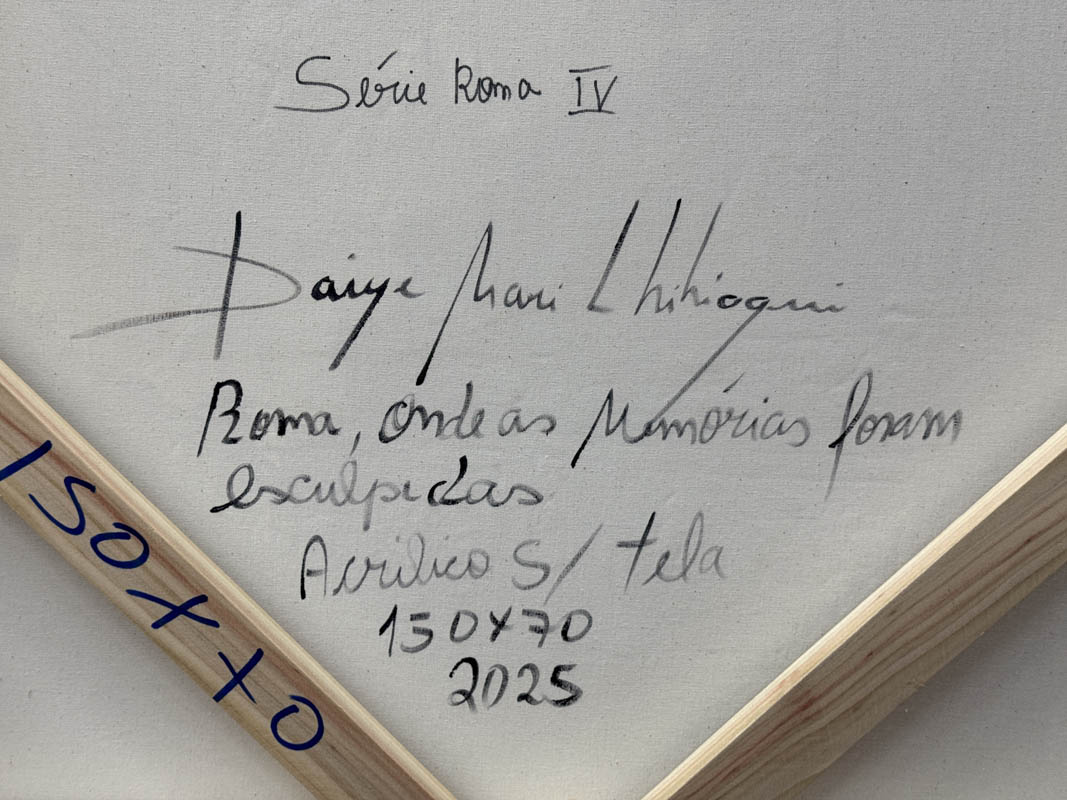 Série Roma IV
Daiye Mari
Roma, onde as Memórias foram
esculpidas
Acrílico S/ tela
150X70
2025
150X70